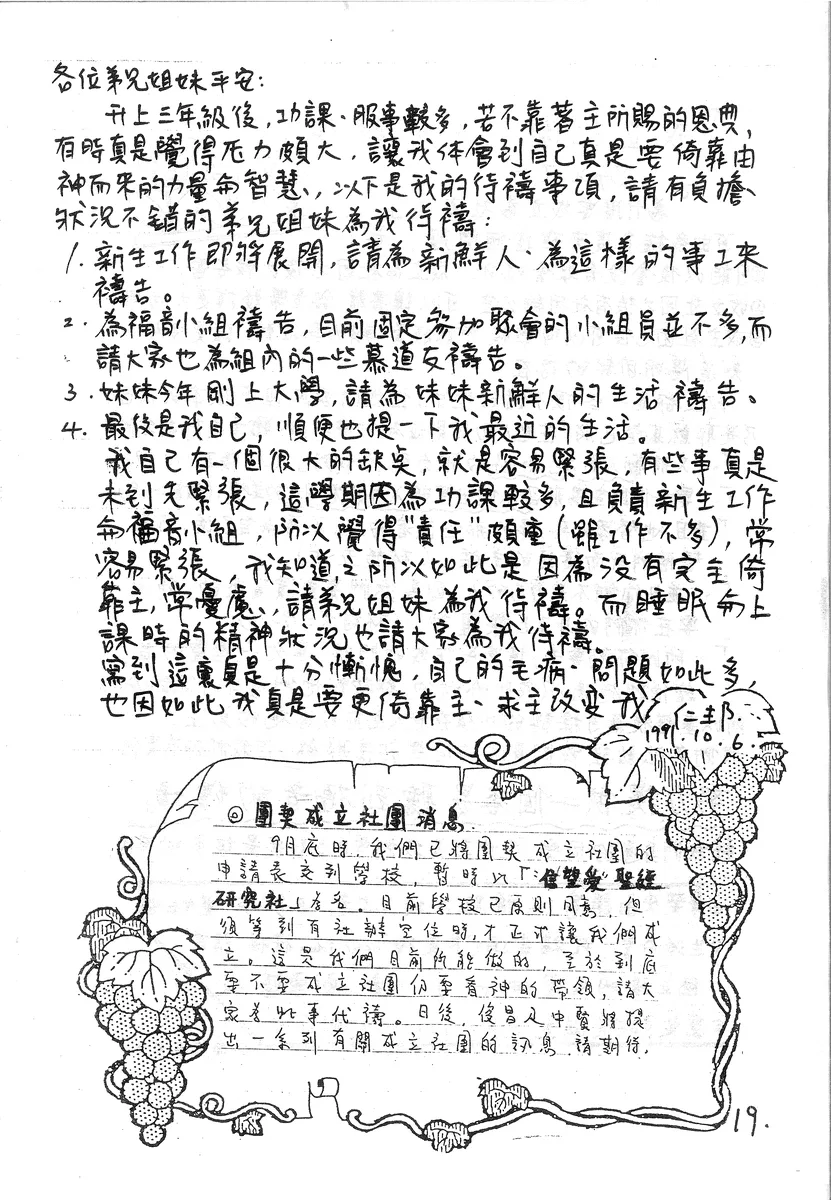 各位弟兄姐妹平安:
升上三年級後,功課、服事較多,若不靠著主所賜的恩典,
有時真是覺得压力頗大,讓我体會到自己真是要倚靠由
神而來的力量和智慧、,以下是我的待禱事項,請有負擔、
狀況不錯的弟兄姐妹為我待禱:
1. 新生工作即將展開,請為新鮮人、為這樣的事工來
禱告。
2. 為福音小組禱告,目前固定參加聚會的小組員並不多,而
請大家也為組內的一些慕道友禱告。
3. 妹妹今年剛上大學,請為妹妹新鮮人的生活禱告。
4. 最後是我自己,順便也提一下我最近的生活。
我自己有一個很大的缺点,就是容易緊張,有些事真是
未到先緊張,這學期因為功課較多,且負責新生工作
和福音小組,所以覺得"責任"頗重(雖工作不多),常
容易緊張,我知道之所以如此是因為沒有完全倚
靠主,常憂慮、,請弟兄姐妹為我待禱。而睡眠和上
課時的精神狀況也請大家為我待禱。
寫到這裏真是十分慚愧,自己的毛病、問題如此多,
也因如此我真是要更倚靠主、求主改變我
仁邦.
1991.10.6.
◎ 團契成立社團消息
9月底時,我們已將團契成立社團的
申請表交到學校,暫時以「"信望愛"聖經
研究社」為名。目前學校已原則同意,但
須等到有社辦空位時,才正式讓我們成
立。這是我們目前所能做的,至於到底
要不要成立社團仍要看神的帶領,請大
家為此事代禱。日後,俊昌及中賢將提
出一系列有關成立社團的訊息 請期待.
19.